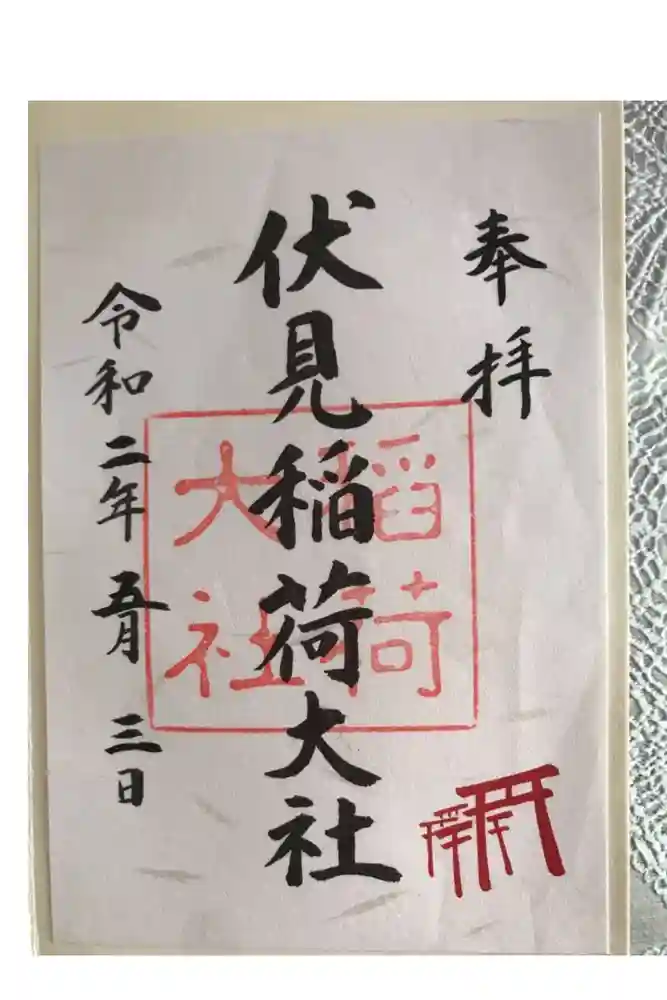 奉拝
伏見稲荷大社
稲荷
大社
令和二年五月三日